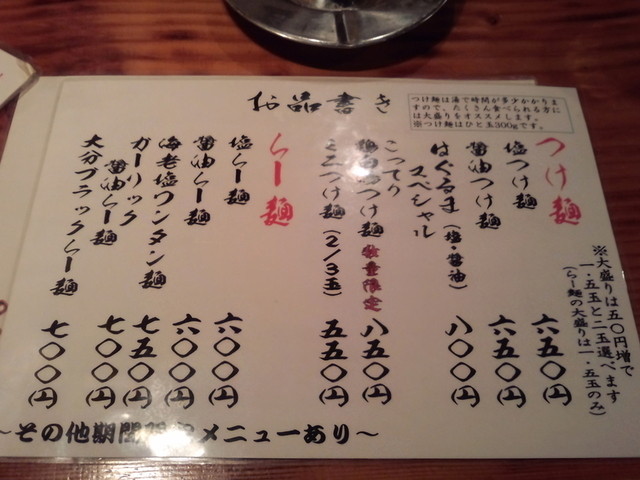 お品書き
つけ麺は湯で時間が多少かかりま
すので、たくさん食べられる方に
は大盛りをオススメします。
※つけ麺はひと玉300gです。
つけ麺
塩つけ麺 六五〇円
醤油つけ麺 六五〇円
はぐるま(塩・醤油)
スペシャル 八〇〇円
こってり
つけ麺 数量限定 八五〇円
ミニつけ麺(2/3玉) 五五〇円
※大盛りは五〇円増で
一・五玉と二玉選べます
(らー麺の大盛りは一・五玉のみ)
らー麺
塩らー麺 六〇〇円
醤油らー麺 六〇〇円
海老塩ワンタン麺 七五〇円
ガーリック
醤油らー麺 七〇〇円
大分ブラックらー麺 七〇〇円
〜その他期間限定メニューあり〜